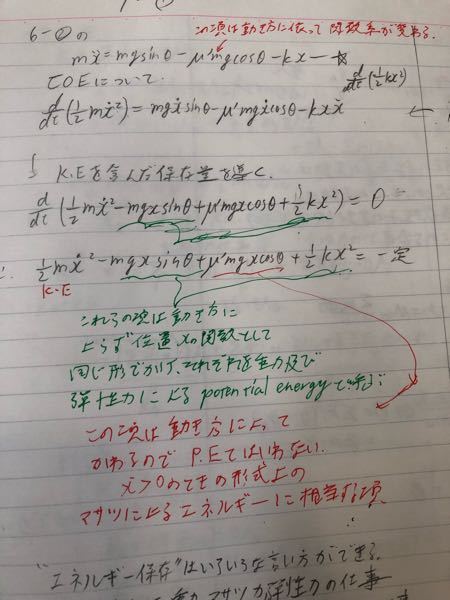 6-②の
この項は動き方に依って関数系が変る.
mẍ = mg sinθ - μ'mg cosθ - kx — ☆
COEについて.
d/dt(½kx²)
d/dt(½mẋ²) = mgẋ sinθ - μ'mgẋ cosθ - kxẋ
K.Eを含んだ保存量を導く.
d/dt(½mẋ² - mgx sinθ + μ'mgx cosθ + ½kx²) = 0
½mẋ² - mgx sinθ + μ'mgx cosθ + ½kx² = 一定
K.E
これらの項は動き方に
よらず位置xの関数として
同じ形でかけ、それぞれを重力及び
弾性力によるpotential energyで
この項は動き方によって
かわるのでP.Eではいわない.
ẋ>0のときの形式上の
マサツによるエネルギーに相当する項
"エネルギー保存"はいろいろな言い方ができる.
マサツカ弾性力の仕事